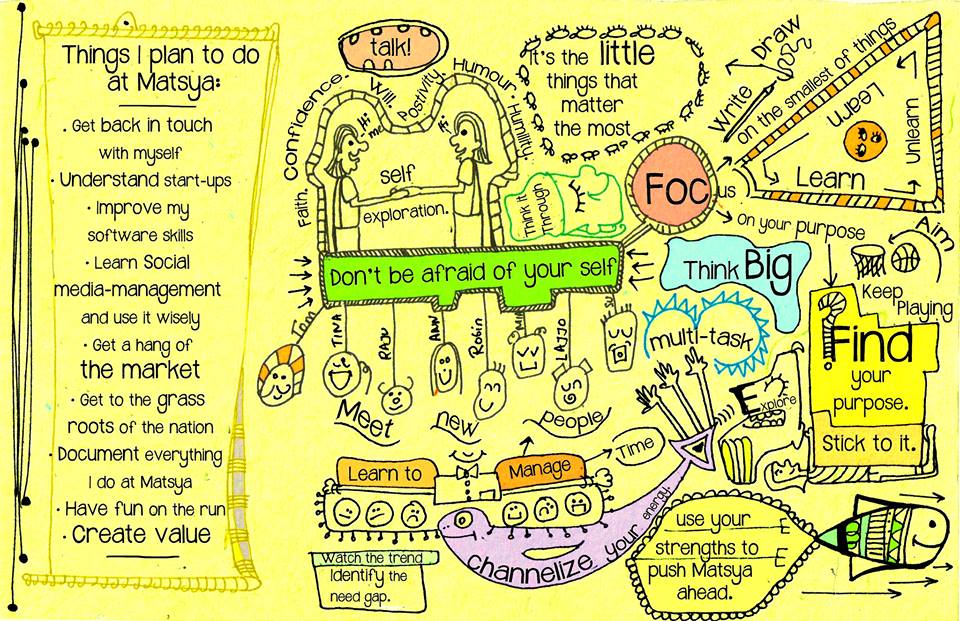 Things I plan to do
at Matsya:
. Get back in touch
with myself
· Understand start-ups
· Improve my
software skills
· Learn Social
media-management
and use it wisely
· Get a hang of
the market
· Get to the grass
roots of the nation
· Document everything
I do at Matsya
· Have fun on the run
· Create value
talk!
Faith. Confidence. Will. Postivity. Humour. Humility.
Hi
me
Hi
self
exploration.
It's the little
things that
matter
the most
Think It
Through
Don't be afraid of your self
Tom
TINA
RAJU
ANN
Robin
LAJJO
Meet new people
Focus
Write
Draw
on the smallest of things
Learn
Learn
Unlearn
on your purpose
Aim
Keep
Playing
Think Big
multi-task
Explore
Find
your
purpose.
Stick to it.
Learn to Manage Time
Watch the trend
Identify the
need gap.
channelize your energy.
use your
strengths to
push Matsya
ahead.
E
E